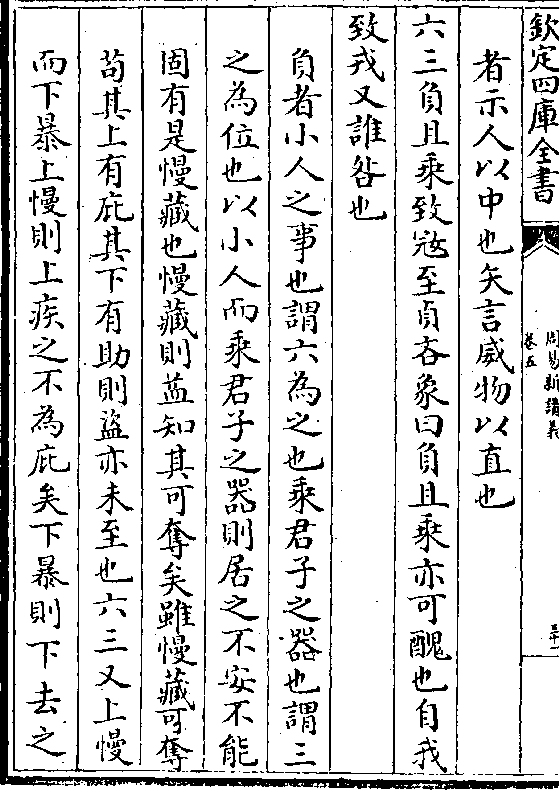 欽定四庫全書
周易新講義
卷五
者示人以中也矢言威物以直也
六三負且乘致寇至貞吝象曰負且乘亦可醜也自我
致戎又誰咎也
負者小人之事也謂六為之也乘君子之器也謂三
之為位也以小人而乘君子之器則居之不安不能
固有是慢藏也慢藏則盜知其可奪矣雖慢藏可奪
茍其上有庇其下有助則盜亦未至也六三又上慢
而下暴上慢則上疾之不為庇矣下暴則下去之